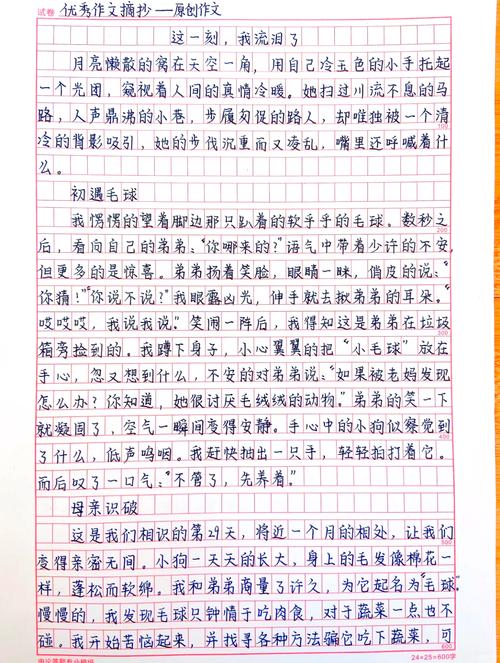 试卷 优秀作文摘抄——原创作文
这一刻，我流泪了
月亮懒散的窝在天空一角，用自己冷玉色的小手托起
一个光团，窥视着人间的真情冷暖。她扫过川流不息的马
路，人声鼎沸的小巷，步履匆促的路人，却唯独被一个清
冷的背影吸引，她的步伐沉重而又凌乱，嘴里还呼喊着什
么。
初遇毛球
我愣愣的望着脚边那只趴着的软乎乎的毛球。数秒之
后，看向自己的弟弟："你哪来的？"语气中带着少许的不安，
但更多的是惊喜。弟弟扬着笑脸，眼睛一眯，俏皮的说：
"你猜！""你说不说？"我眼露凶光，伸手就去揪弟弟的耳朵。
"哎哎哎，我说我说。"笑闹一阵后，我得知这是弟弟在垃圾
箱旁捡到的。我蹲下身子，小心翼翼的把"小毛球"放在
手心，忽又想到什么，不安的对弟弟说："如果被老妈发现
怎么办？你知道，她很讨厌毛绒绒的动物。"弟弟的笑一下
就凝固了，空气一瞬间变得安静。手心中的小狗似察觉到
了什么，低声呜咽。我赶快抽出一只手，轻轻拍打着它。
而后叹了一口气："不管了，先养着。"
母亲识破
这是我们相识的第29天，将近一个月的相处，让我们
变得亲密无间。小狗一天天的长大，身上的毛发像棉花一
样，蓬松而软绵。我和弟弟商量了许久，为它起名为"毛球"。
慢慢的，我发现毛球只钟情于吃肉食，对于蔬菜一点也不
碰。我开始苦恼起来，并找寻各种方法骗它吃下蔬菜，可
24×25=600字